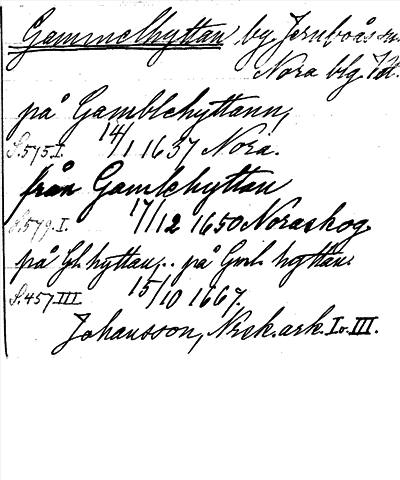 Gammelhyttan by, Jernboås sn.
Nora blg. Vstl.
på Gamblehyttann,
S. 575. I. 14/1 1637 Nora.
från Gamlehyttan
S. 579. I. 17/12 1650 Noraskog.
på Gl. hyttan,.. på Gml. hyttan.
S. 457 III. 15/10 1667.
Johansson, Nrsk. ark. I o. III.